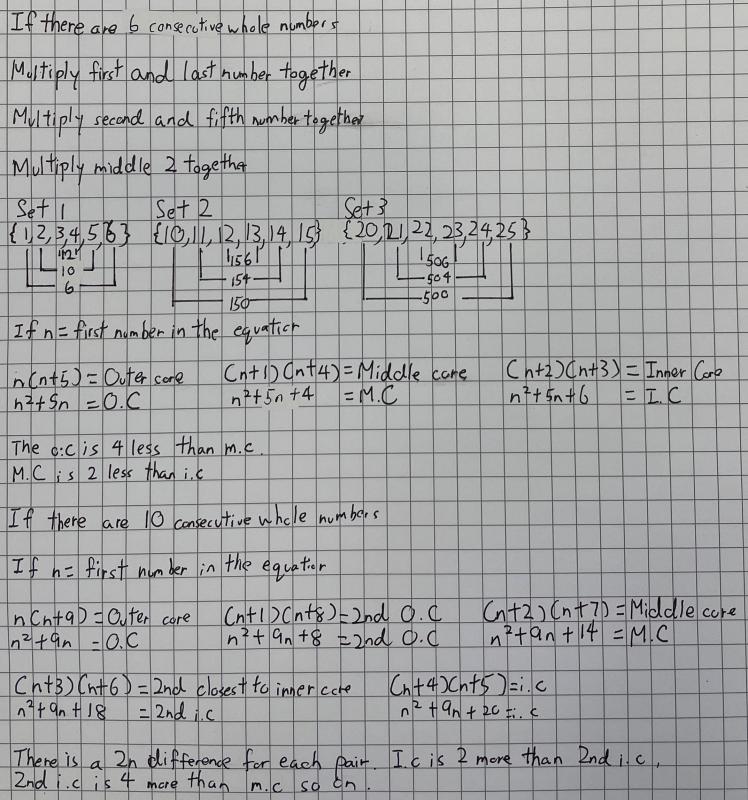 If there are 6 consecutive whole numbers
Multiply first and last number together
Multiply second and fifth number together
Multiply middle 2 together
Set 1 Set 2 Set 3
{1,2,3,4,5,6} {10,11,12,13,14,15} {20,21,22,23,24,25}
12 156 506
10 154 504
6 150 500
If n = first number in the equation
n(n+5) = Outer core (n+1)(n+4) = Middle core (n+2)(n+3) = Inner Core
n²+5n = O.C n²+5n+4 = M.C n²+5n+6 = I.C
The o.c is 4 less than m.c.
M.C is 2 less than i.c
If there are 10 consecutive whole numbers
If n = first number in the equation
n(n+9) = Outer core (n+1)(n+8) = 2nd O.C (n+2)(n+7) = Middle core
n²+9n = O.C n²+9n+8 = 2nd O.C n²+9n+14 = M.C
(n+3)(n+6) = 2nd closest to inner core (n+4)(n+5) = i.c
n²+9n+18 = 2nd i.c n²+9n+20 = i.c
There is a 2n difference for each pair. I.c is 2 more than 2nd i.c,
2nd i.c is 4 more than m.c so on.